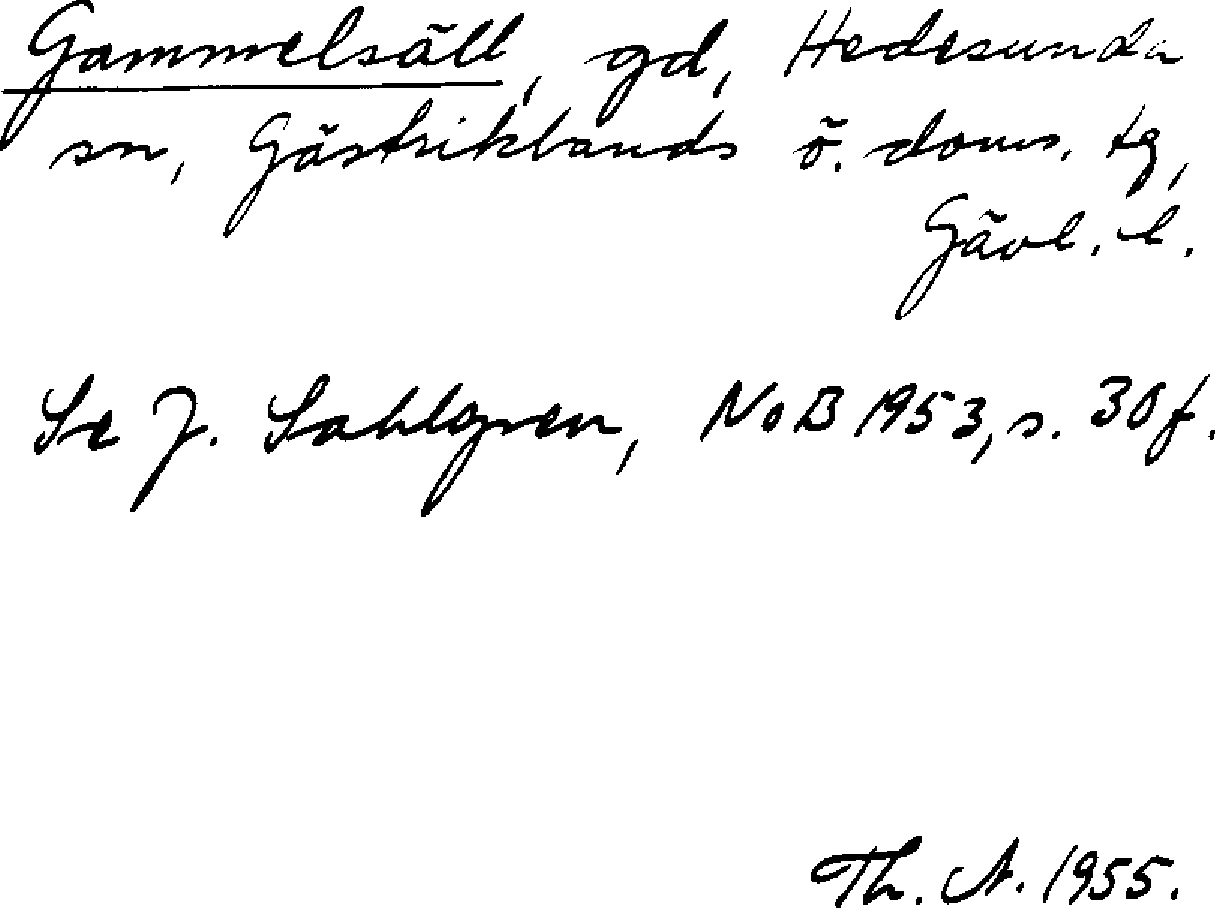 Gammelsäll, gd, Hedesunda
sn, Gästriklands ö. doms. tg,
Gävl. l.
Se J. Sahlgren, NoB 1953, s. 30 f.
Th. A. 1955.